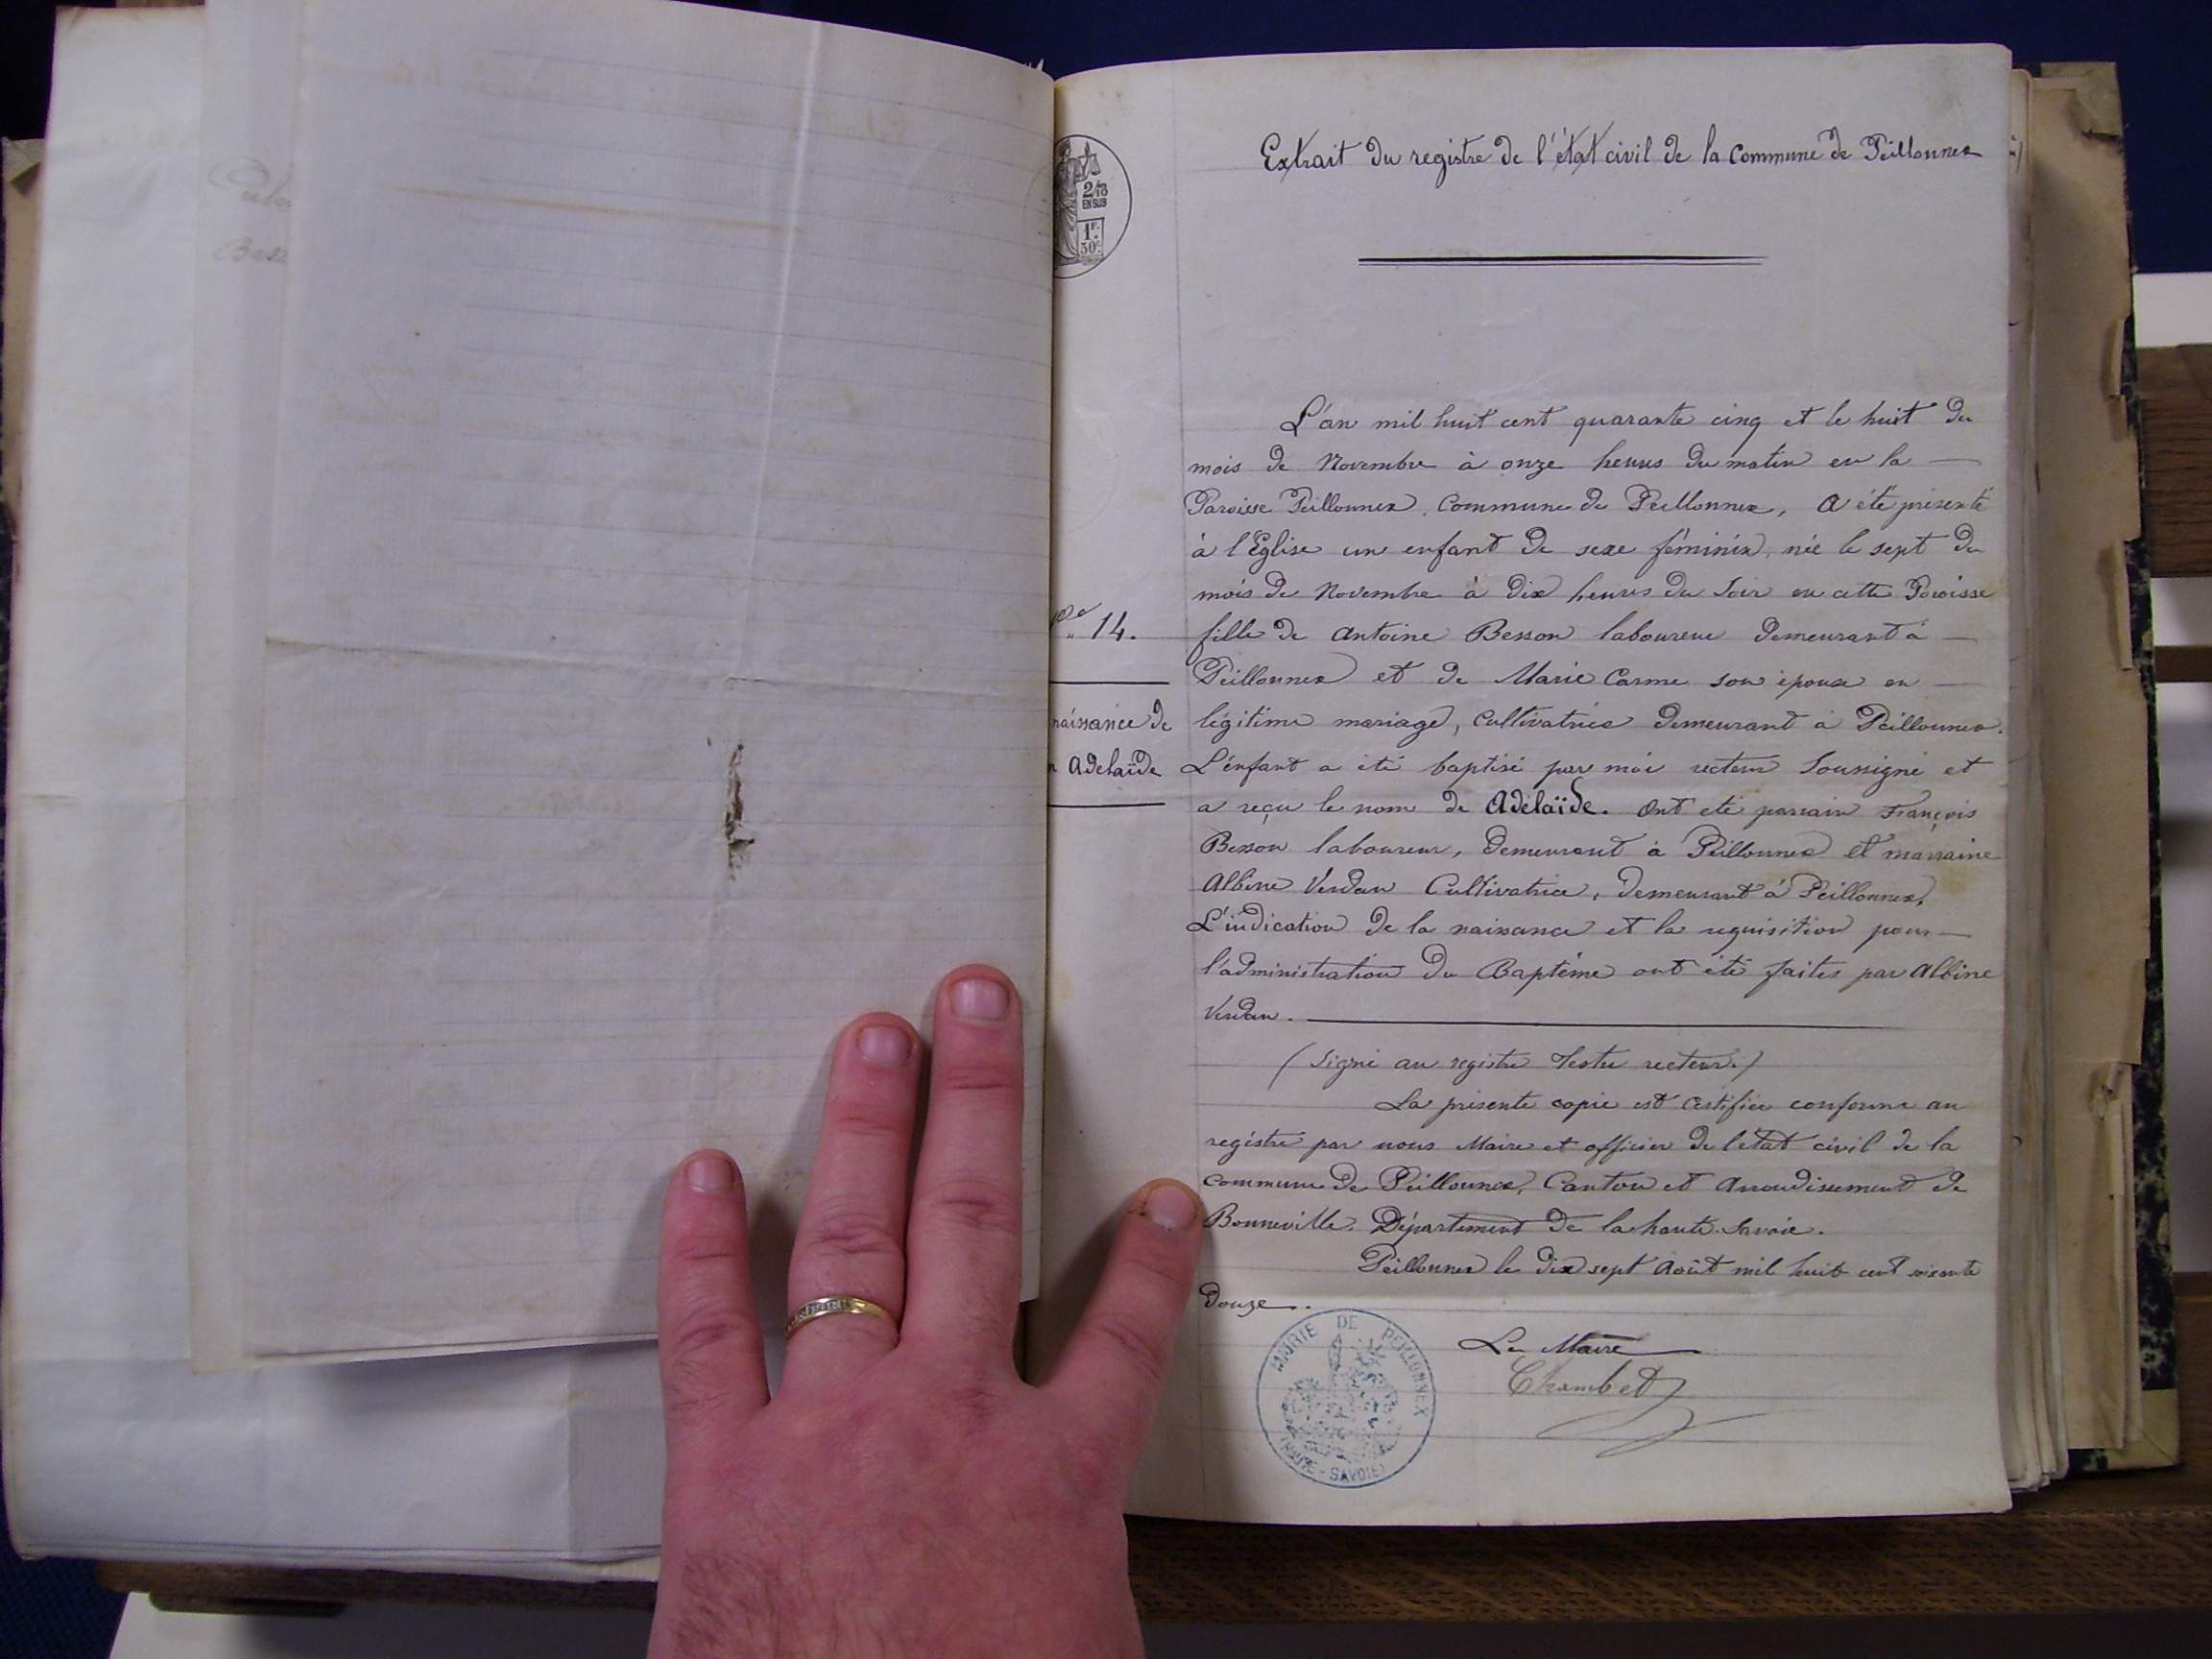 Extrait du registre de l'état civil de la commune de Peillonnex
2/10
EN SUS
1F.
50c.
L'an mil huit cent quarante cinq et le huit du
mois de Novembre à onze heures du matin en la
Paroisse Peillonnex, commune de Peillonnex, a été présenté
à l'Eglise un enfant de sexe féminin, née le sept du
mois de Novembre à dix heures du soir en cette Paroisse
No 14.
fille de Antoine Besson laboureur demeurant à
Peillonnex et de Marie Carme son épouse en
naissance de
légitime mariage, cultivatrice demeurant à Peillonnex.
Adelaïde
L'enfant a été baptisé par moi recteur soussigné et
a reçu le nom de Adélaïde. Ont été parrain François
Besson laboureur, demeurant à Peillonnex et marraine
Albine Verdan Cultivatrice, demeurant à Peillonnex.
L'indication de la naissance et la requisition pour
l'administration du Baptême ont été faites par Albine
Verdan.
(Signé au registre Testu recteur.)
La présente copie est certifiée conforme au
registre par nous Maire et officier de l'état civil de la
commune de Peillonnex, Canton et arrondissement de
Bonneville. Département de la haute-Savoie.
Peillonnex le dix sept Août mil huit cent soixante
douze.
MAIRIE DE PEILLONNEX
(HAUTE-SAVOIE)
Le Maire
Chambet